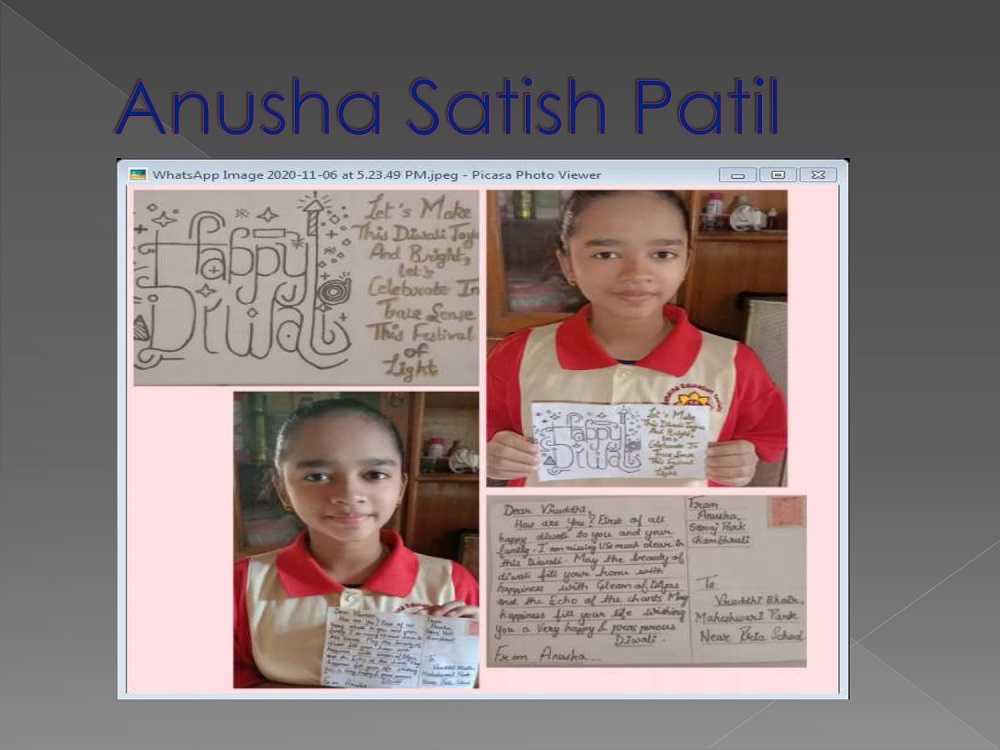 Anusha Satish Patil
WhatsApp Image 2020-11-06 at 5.23.49 PM.jpeg - Picasa Photo Viewer
Happy
Diwali
Let's Make
This Diwali Joyo
And Bright,
let's
Celebrate In
True Sense
This Festival
of
Light
Happy
Diwali
Let's Make
This Diwali Joyou
And Bright,
let's
Celebrate In
True Sense
This Festival
of
Light
Dear Vruddhi,
How are You? First of all
happy diwali to you and your
family. I am missing U so much dear in
this Diwali. May the beauty of
diwali fill youre home with
happiness with Gleam of Diyas
and the Echo of the chants May
happiness fill your life wishing
you a Very happy & prosperous
Diwali.
From Anusha...
From
Anusha,
Park
To
Vruddhi
Maheshwari Park
Near School